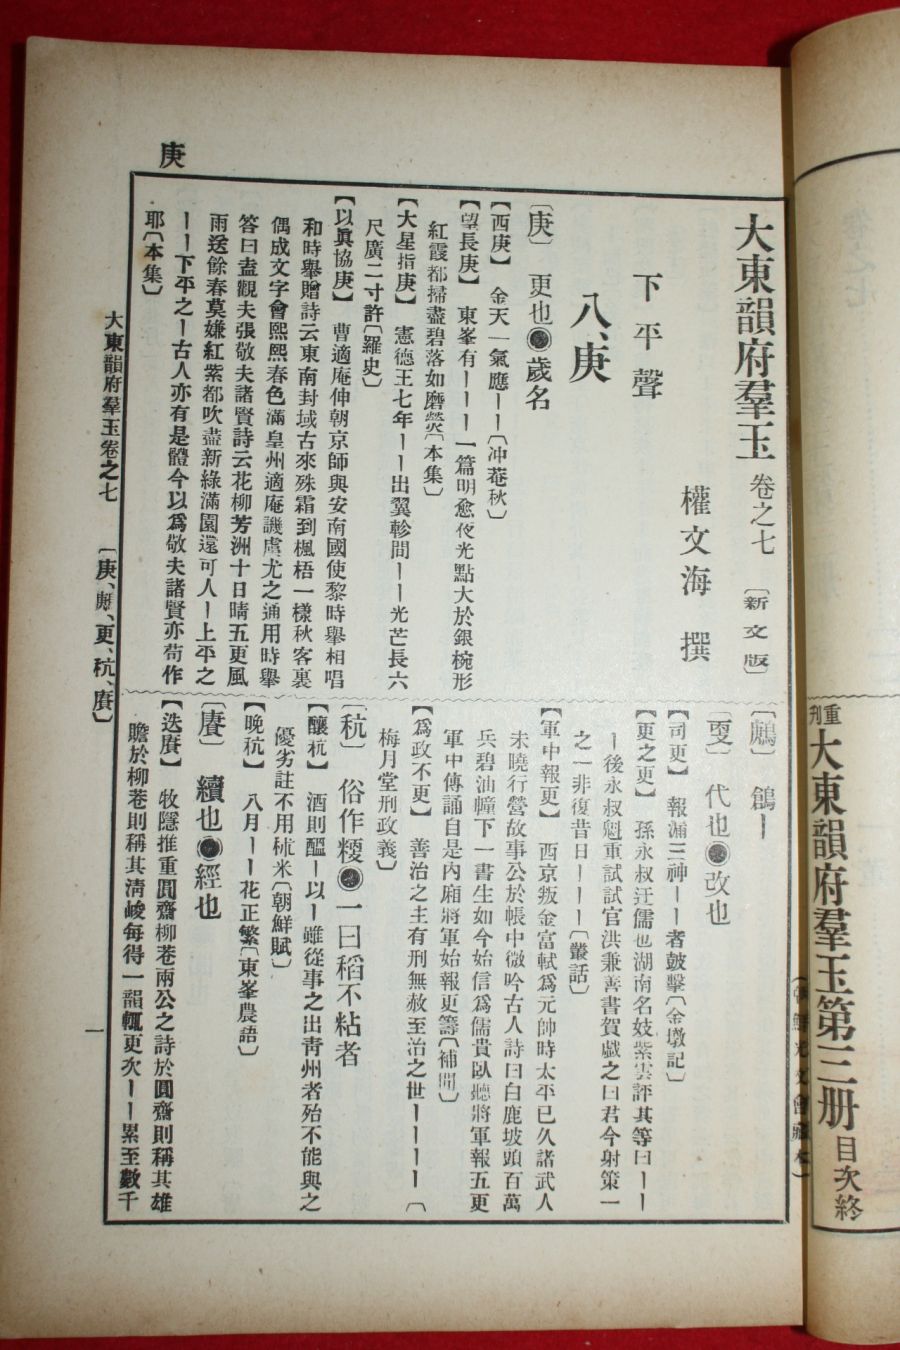 重刊 大東韻府羣玉第三册 目次終
大東韻府羣玉 卷之七 〔新文版〕
權文海 撰
下平聲
八、庚
〔庚〕 更也●歲名
【西庚】 金天一氣應ーー〔冲菴秋〕
【望長庚】 東峯有ーーー一篇明愈夜光點大於銀椀形
紅霞都掃盡碧落如磨熒〔本集〕
【大星指庚】 憲德王七年ーー出翼軫間ーー光芒長六
尺廣二寸許〔羅史〕
【以眞協庚】 曹適庵伸朝京師與安南國使黎時擧相唱
和時擧贈詩云東南封域古來殊霜到楓梧一樣秋客裏
偶成文字會熙熙春色滿皇州適庵譏虞尤之通用時擧
答曰盍觀夫張敬夫諸賢詩云花柳芳洲十日晴五更風
雨送餘春莫嫌紅紫都吹盡新綠滿園還可人ー上平之
ーー下平之ー古人亦有是體今以爲敬夫諸賢亦苟作
耶〔本集〕
〔鶊〕 鶬ー
〔更〕 代也●改也
【司更】 報漏三神ーー者鼓擊〔金墩記〕
【更之更】 孫永叔迂儒也湖南名妓紫雲評其等曰ーー
ー後永叔魁重試試官洪兼善書賀戱之曰君今射策一
之一非復昔日ーーー〔叢話〕
【軍中報更】 西京叛金富軾爲元帥時太平已久諸武人
未曉行營故事公於帳中微吟古人詩曰白鹿坡頭百萬
兵碧油幢下一書生如今始信爲儒貴臥聽將軍報五更
軍中傳誦自是內廂將軍始報更籌〔補閒〕
【爲政不更】 善治之主有刑無赦至治之世ーーーー〔
梅月堂刑政義〕
〔秔〕 俗作粳●一曰稻不粘者
【釀秔】 酒則醞ー以ー雖從事之出靑州者殆不能與之
優劣註不用秫米〔朝鮮賦〕
【晚秔】 八月ーー花正繁〔東峯農語〕
〔賡〕 續也●經也
【迭賡】 牧隱推重圓齋柳巷兩公之詩於圓齋則稱其雄
贍於柳巷則稱其淸峻每得一韻輒更次ーー累至數千
庚
大東韻府羣玉卷之七 〔庚、鶊、更、秔、賡〕
一